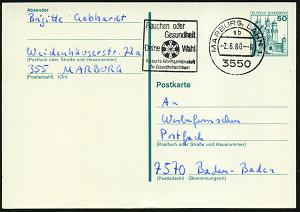 Absender
Brigitte Gebhardt
Weidenhäuserstr. 77a
(Postfach oder Straße und Hausnummer)
355 MARBURG
(Postleitzahl) (Ort)
Rauchen oder
Gesundheit
Deine Wahl
für Gesundheitserziehung
MARBURG, LAHN
sb
-2.6.80-
3550
DEUTSCHE BUNDESPOST
50
Postkarte
An
Werbefernsehen
Postfach
(Postfach oder Straße und Hausnummer)
7570 Baden-Baden
(Postleitzahl) (Bestimmungsort)